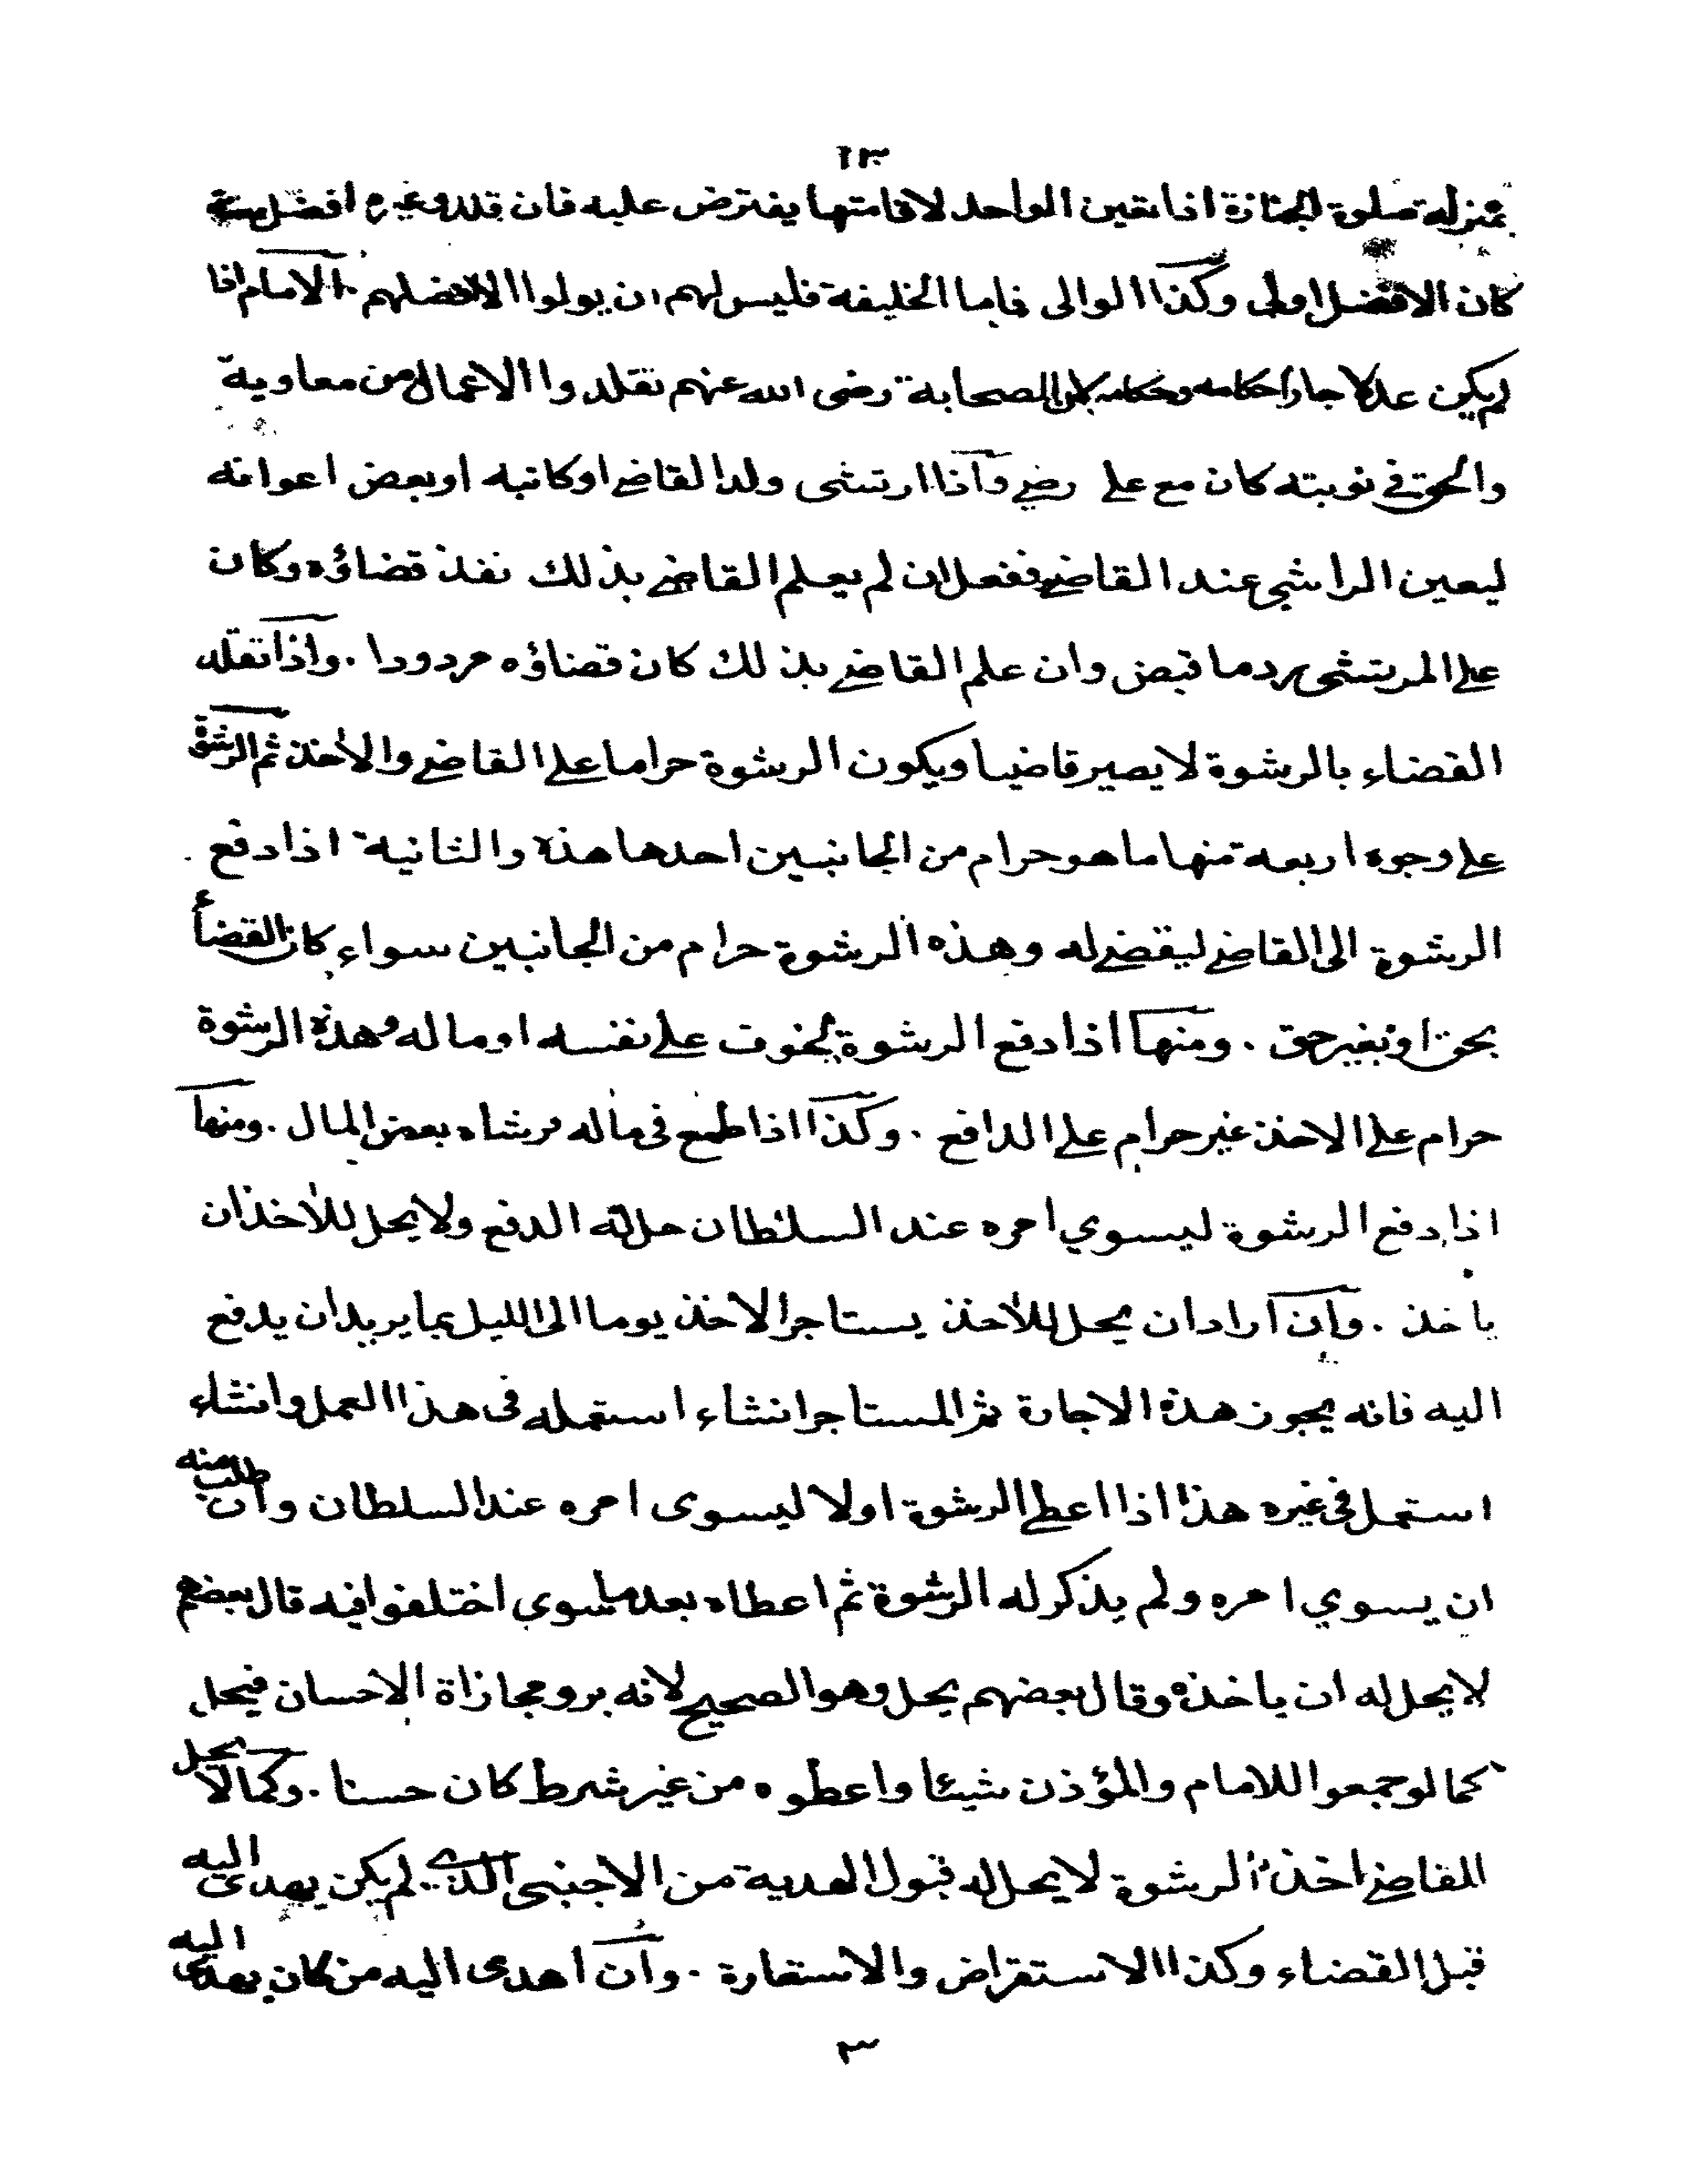 ١٣
بمنزلة صلوة الجنازة اذا تعين الواحد لاقامتها يفترض عليه فان قلد وغيره افضل منه
كان الافضل اولى وكذا الوالى فاما الخليفة فليس لهم ان يولوا الا افضلهم الامام اذا
لم يكن عدلا جاز احكامه وحكامه لان الصحابة رضى الله عنهم تقلدوا الاعمال من معاوية
والحق فى نوبته كان مع على رضى واذا ارتشى ولد القاضى او كاتبه او بعض اعوانه
ليعين الراشى عند القاضى ففعل ان لم يعلم القاضى بذلك نفذ قضاؤه وكان
على المرتشى رد ما قبض وان علم القاضى بذلك كان قضاؤه مردودا . واذا تقلد
القضاء بالرشوة لا يصير قاضيا ويكون الرشوة حراما على القاضى والاخذ ثم الرشوة
على وجوه اربعة منها ما هو حرام من الجانبين احدها هذه والثانية اذا دفع
الرشوة الى القاضى ليقضى له وهذه الرشوة حرام من الجانبين سواء كان القضاء
بحق او بغير حق . ومنها اذا دفع الرشوة لخوف على نفسه او ماله وهذه الرشوة
حرام على الاخذ غير حرام على الدافع . وكذا اذا طمع فى ماله فرشاه بعض المال . ومنها
اذا دفع الرشوة ليسوي امره عند السلطان حل له الدفع ولا يحل للاخذ ان
ياخذ . وان اراد ان يحل للاخذ يستاجر الاخذ يوما الى الليل بما يريد ان يدفع
اليه فانه يجوز هذه الاجارة ثم المستاجر ان شاء استعمله فى هذا العمل وان شاء
استعمل فى غيره هذا اذا اعطى الرشوة اولا ليسوى امره عند السلطان وان طلب منه
ان يسوي امره ولم يذكر له الرشوة ثم اعطاه بعد ما سوى اختلفوا فيه قال بعضهم
لا يحل له ان ياخذه وقال بعضهم يحل وهو الصحيح لانه بر ومجازاة الاحسان فيحل
كما لو جمعوا للامام والمؤذن شيئا واعطوه من غير شرط كان حسنا . وكما لا يحل
للقاضى اخذ الرشوة لا يحل له قبول الهدية من الاجنبى الذى لم يكن يهدى اليه
قبل القضاء وكذا الاستقراض والاستعارة . وان اهدى اليه من كان يهدى اليه
٣